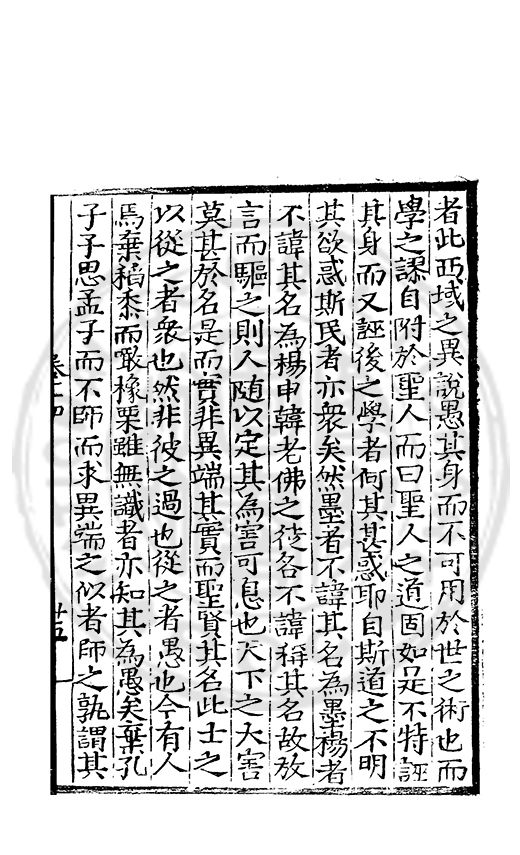 者此西域之異說愚其身而不可用於世之術也而
學之謬自附於聖人而曰聖人之道固如是不特誣
其身而又誣後之學者何其甚惑耶自斯道之不明
其欲惑斯民者亦衆矣然墨者不諱其名為墨楊者
不諱其名為楊申韓老佛之徒各不諱稱其名故放
言而驅之則人随以定其為害可息也天下之大害
莫甚於名是而實非異端其實而聖賢其名此士之
以從之者衆也然非彼之過也從之者愚也今有人
焉棄稻黍而噉橡栗雖無識者亦知其為愚矣棄孔
子子思孟子而不師而求異端之似者師之孰謂其
卷十四
廿五